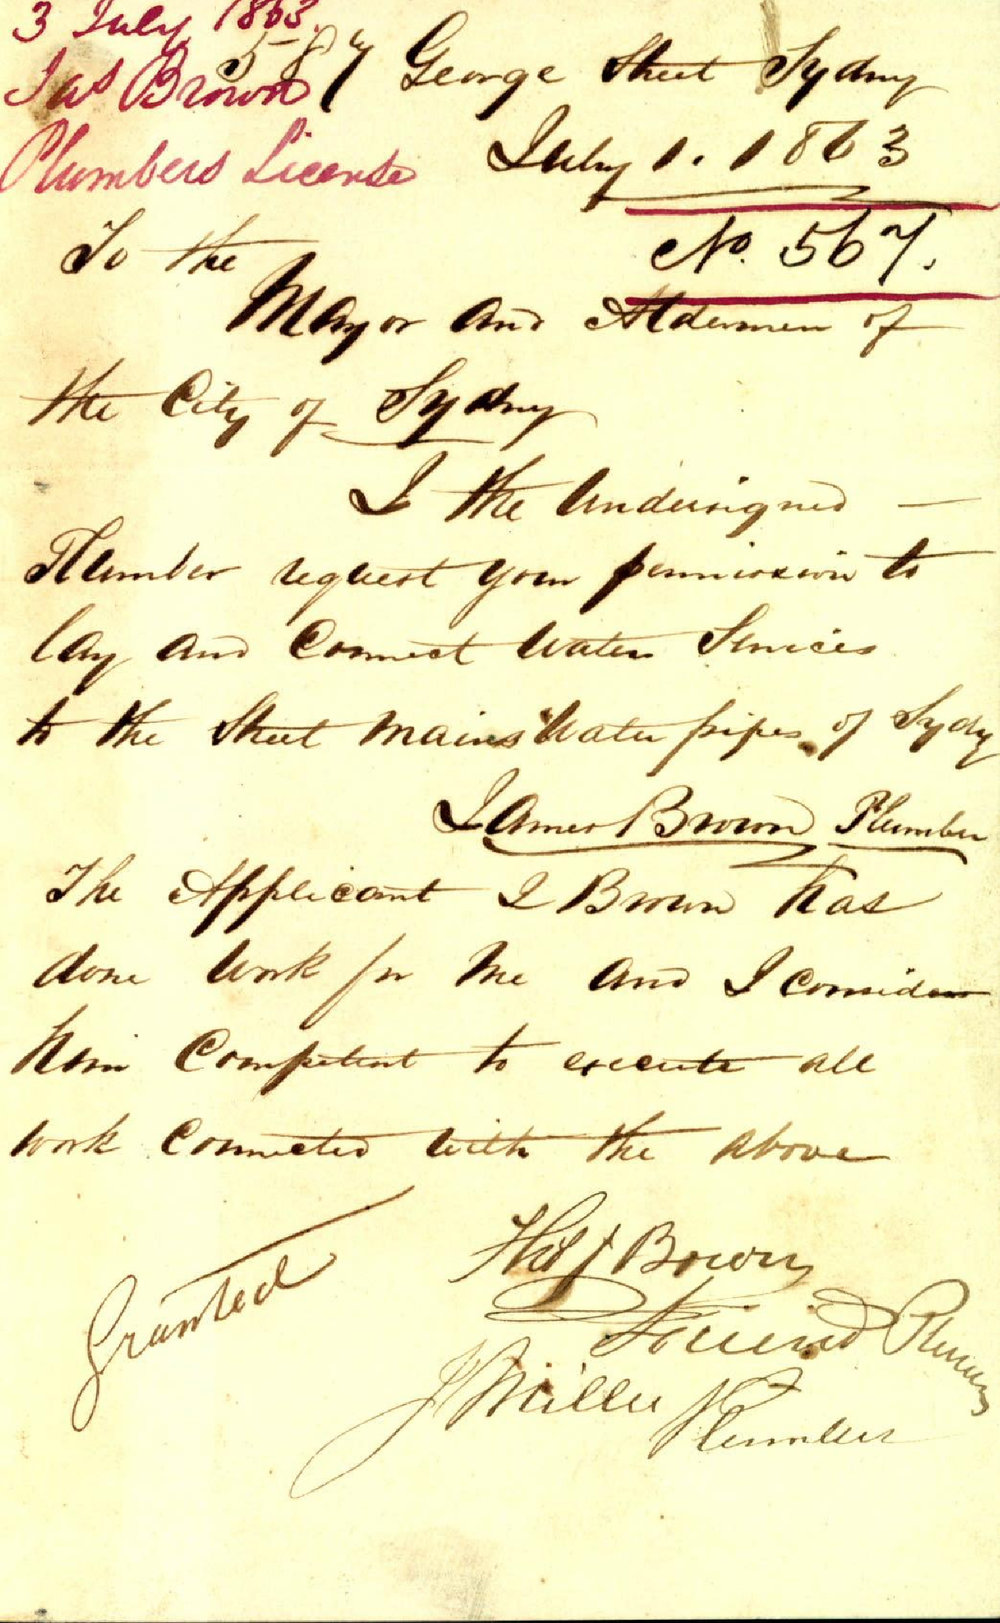 3 July 1863.
Jas Brown
Plumbers License
587 George Street Sydney
July 1. 1863
No. 567.
To the
Mayor and Aldermen of
the City of Sydney
I the Undersigned —
Plumber request your permission to
lay and Connect Water Services
to the Street Mains Water pipes of Sydny
James Brown Plumber
The Applicant J Brown has
done work for me and I consider
him Competent to execute all
work Connected with the above
Granted
Bown
J Miller Plumber